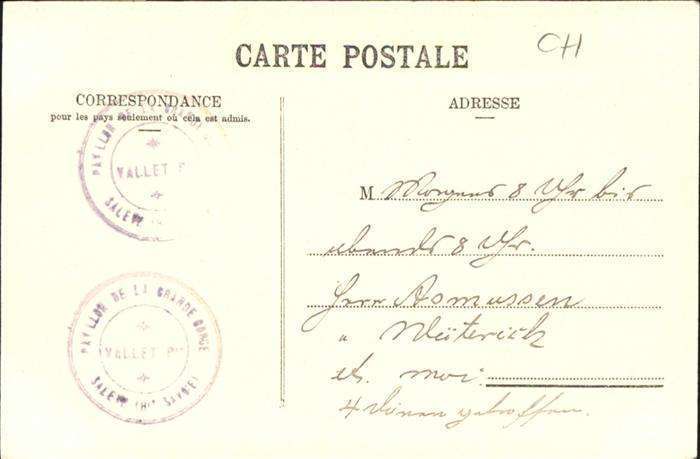 CH
CARTE POSTALE
CORRESPONDANCE
pour les pays seulement où cela est admis.
PAVILLON DE LA GRANDE
VALLET P
SALÈVE (H
PAVILLON DE LA GRANDE GORGE
VALLET P
SALÈVE (Hte SAVOIE)
ADRESSE
M Morgens 8 Uhr bis
abends 8 Uhr.
Herr Asmussen
" Wüterich
et. moi.
4 getroffen.